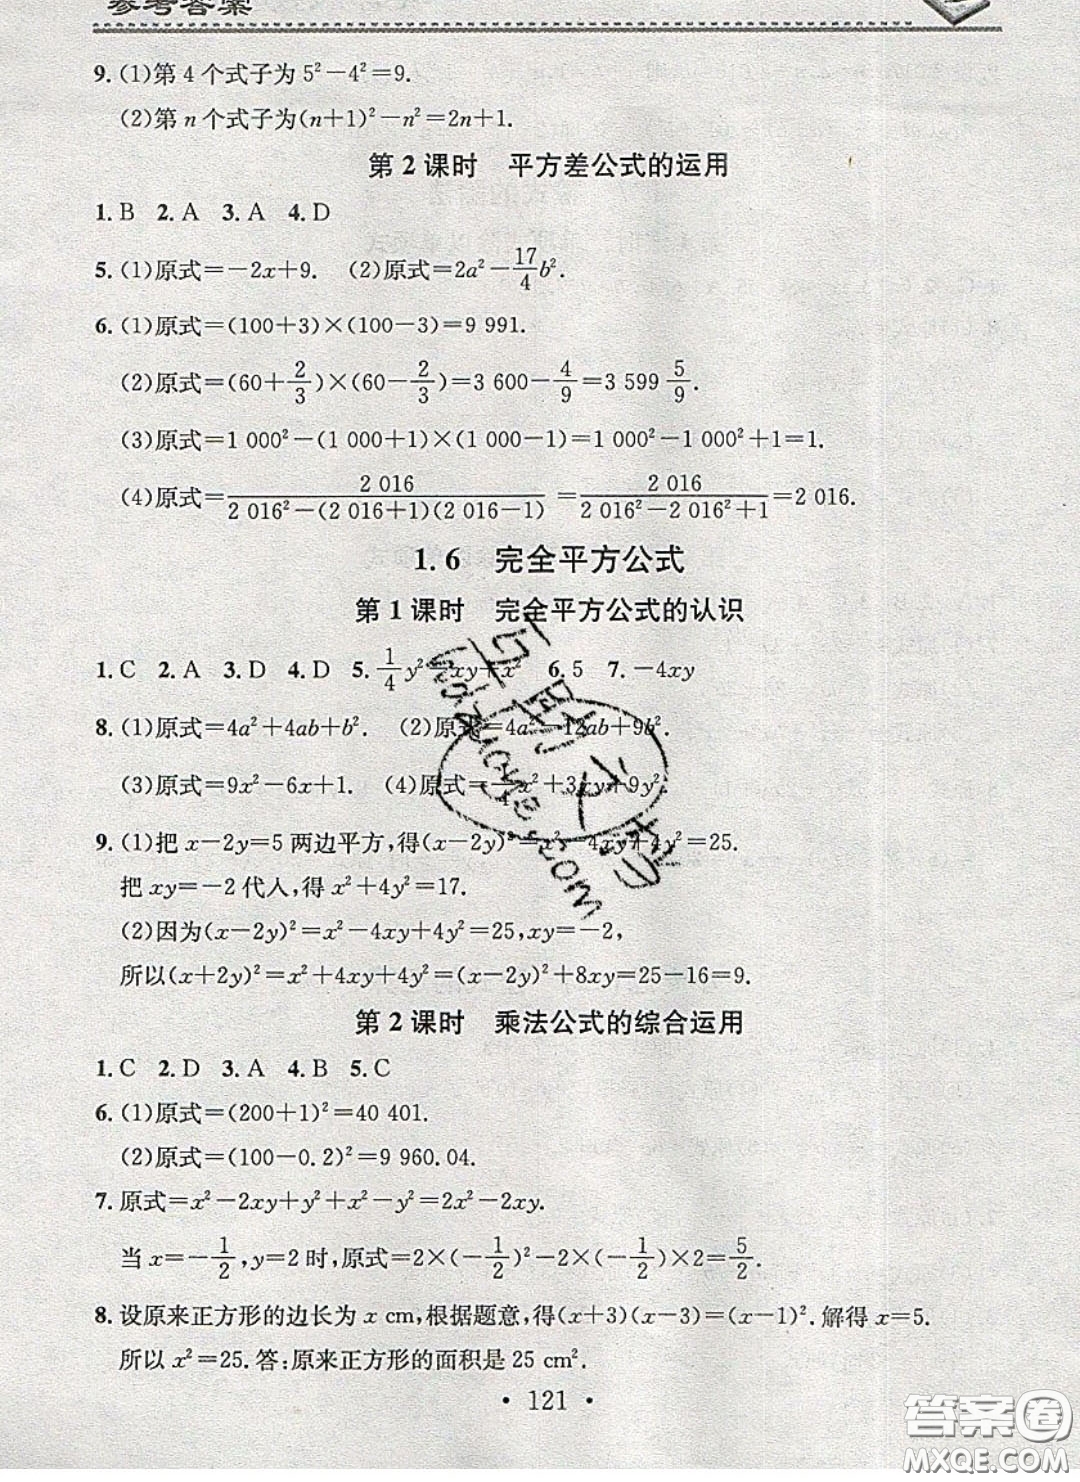 参考答案
9. (1)第 4 个式子为 5²－4²＝9.
(2)第 n 个式子为(n＋1)²－n²＝2n＋1.
第 2 课时　平方差公式的运用
1. B　2. A　3. A　4. D
5. (1)原式＝－2x＋9.　(2)原式＝2a²－17/4b².
6. (1)原式＝(100＋3)×(100－3)＝9 991.
(2)原式＝(60＋2/3)×(60－2/3)＝3 600－4/9＝3 599 5/9.
(3)原式＝1 000²－(1 000＋1)×(1 000－1)＝1 000²－1 000²＋1＝1.
(4)原式＝2 016/(2 016²－(2 016＋1)(2 016－1))＝2 016/(2 016²－2 016²＋1)＝2 016.
1.6　完全平方公式
第 1 课时　完全平方公式的认识
1. C　2. A　3. D　4. D　5. 1/4y²－xy＋x²　6. 5　7. －4xy
8. (1)原式＝4a²＋4ab＋b².　(2)原式＝4a²－12ab＋9b².
(3)原式＝9x²－6x＋1.　(4)原式＝ /4x²＋3xy＋9y².
9. (1)把 x－2y＝5 两边平方，得(x－2y)²＝x²－4xy＋4y²＝25.
把 xy＝－2 代人，得 x²＋4y²＝17.
(2)因为(x－2y)²＝x²－4xy＋4y²＝25，xy＝－2，
所以(x＋2y)²＝x²＋4xy＋4y²＝(x－2y)²＋8xy＝25－16＝9.
第 2 课时　乘法公式的综合运用
1. C　2. D　3. A　4. B　5. C
6. (1)原式＝(200＋1)²＝40 401.
(2)原式＝(100－0.2)²＝9 960.04.
7. 原式＝x²－2xy＋y²＋x²－y²＝2x²－2xy.
当 x＝－1/2，y＝2 时，原式＝2×(－1/2)²－2×(－1/2)×2＝5/2.
8. 设原来正方形的边长为 x cm，根据题意，得(x＋3)(x－3)＝(x－1)². 解得 x＝5.
所以 x²＝25. 答：原来正方形的面积是 25 cm².
· 121 ·
答案圈
MXQE.COM